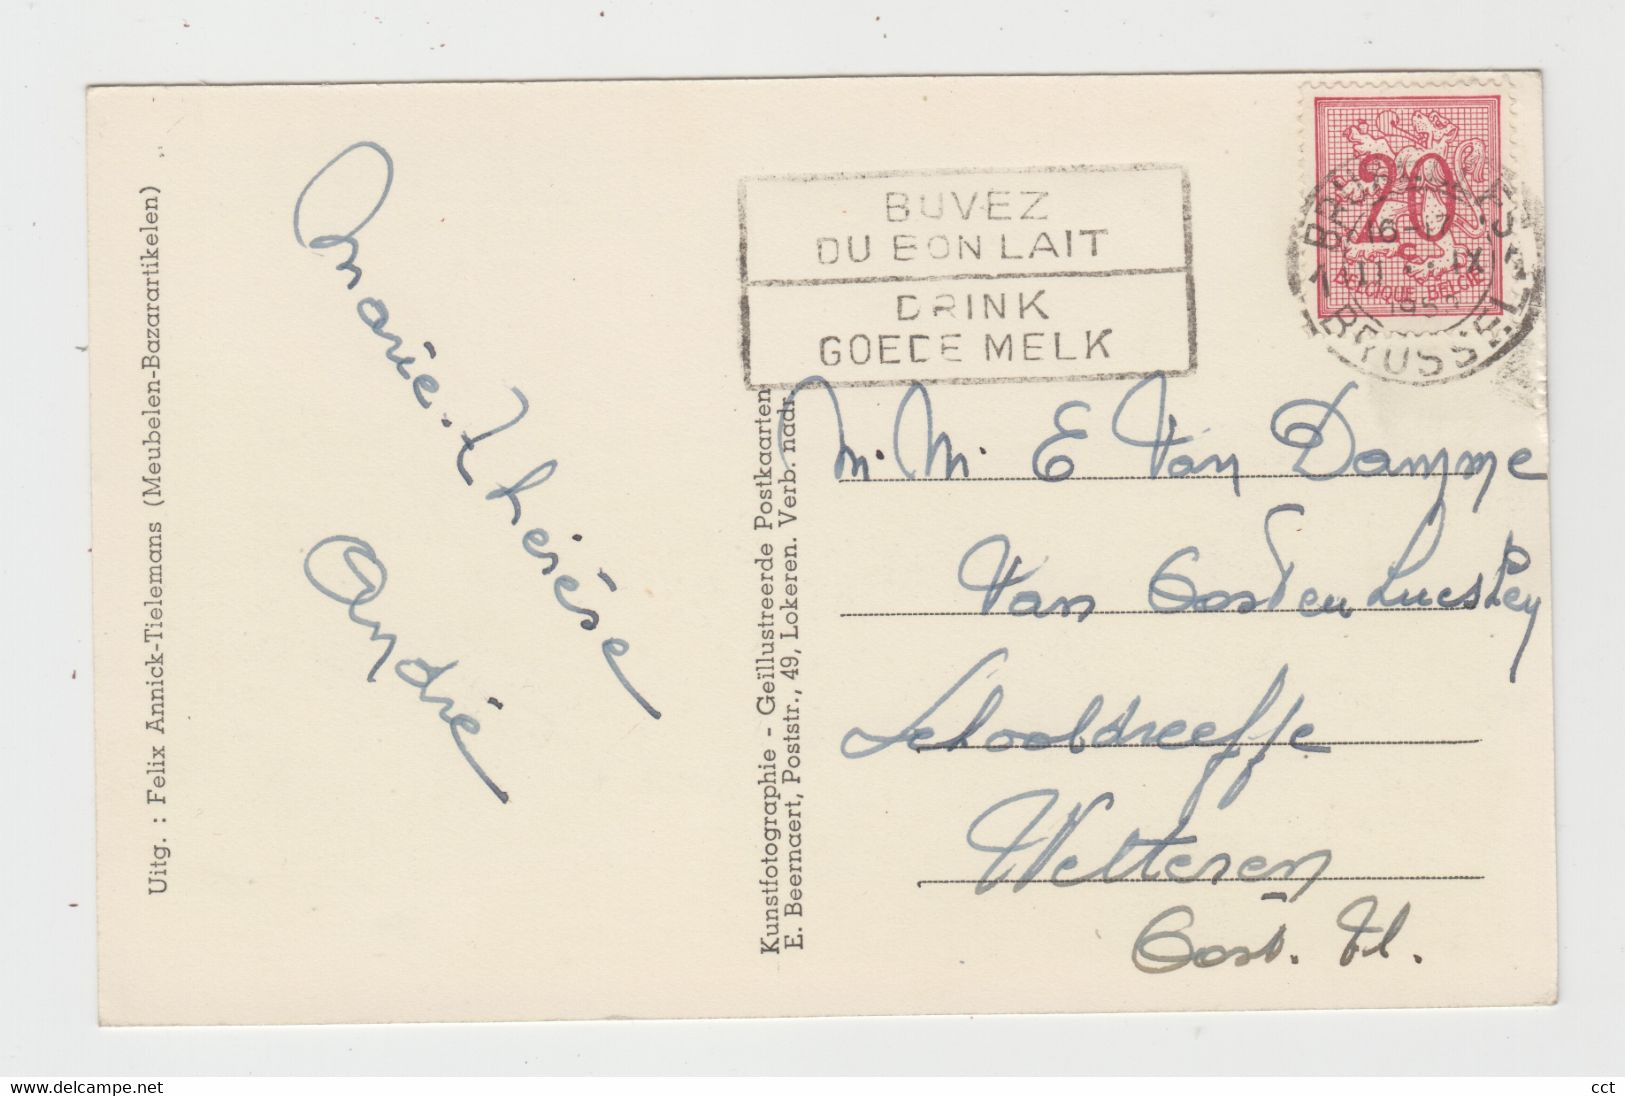 Uitg. : Felix Annick-Tielemans (Meubelen-Bazarartikelen)
Marie-Thérèse
André
Kunstfotographie - Geïllustreerde Postkaarten
E. Beernaert, Poststr., 49, Lokeren. Verb. nadr.
BUVEZ
DU BON LAIT
DRINK
GOEDE MELK
20
BELGIQUE-BELGIE
16-17
BRUSSEL
M. M. E Van Damme
Van Oosten
Schooldreefje
Wetteren
Oost. Vl.
www.delcampe.net
cct